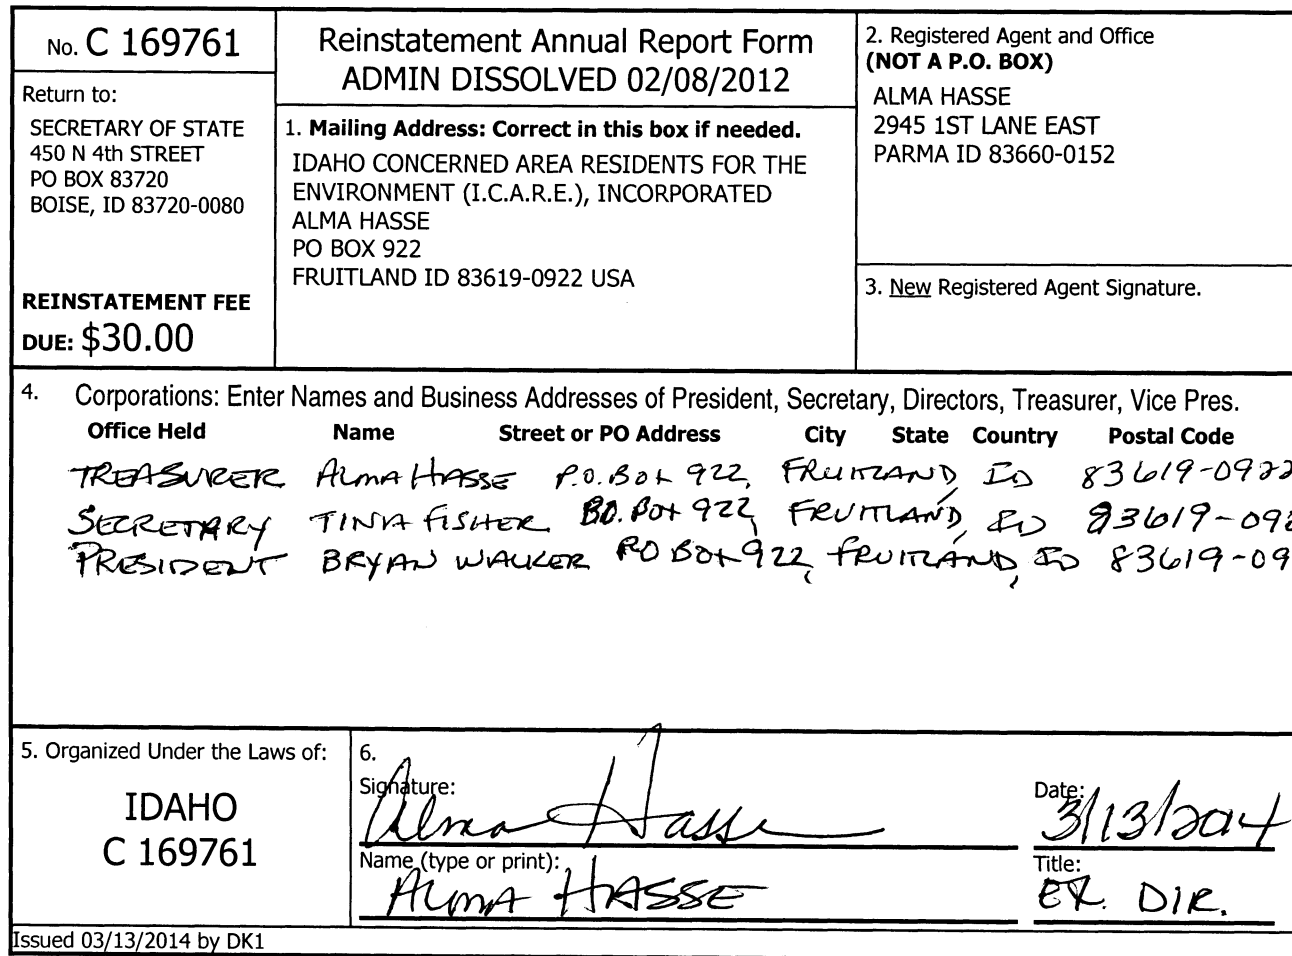 No. C 169761
Return to:
SECRETARY OF STATE
450 N 4th STREET
PO BOX 83720
BOISE, ID 83720-0080
REINSTATEMENT FEE
DUE: $30.00
Reinstatement Annual Report Form
ADMIN DISSOLVED 02/08/2012
1. Mailing Address: Correct in this box if needed.
IDAHO CONCERNED AREA RESIDENTS FOR THE
ENVIRONMENT (I.C.A.R.E.), INCORPORATED
ALMA HASSE
PO BOX 922
FRUITLAND ID 83619-0922 USA
2. Registered Agent and Office
(NOT A P.O. BOX)
ALMA HASSE
2945 1ST LANE EAST
PARMA ID 83660-0152
3. New Registered Agent Signature.
4. Corporations: Enter Names and Business Addresses of President, Secretary, Directors, Treasurer, Vice Pres.
Office Held Name Street or PO Address City State Country Postal Code
TREASURER ALMA HASSE P.O. BOX 922, FRUITLAND, ID 83619-0922
SECRETARY TINA FISHER P.O. BOX 922, FRUITLAND, ID 83619-092
PRESIDENT BRYAN WALKER PO BOX 922, FRUITLAND, ID 83619-09
5. Organized Under the Laws of:
IDAHO
C 169761
6.
Signature:
Alma Hasse
Date:
3/13/2014
Name (type or print):
ALMA HASSE
Title:
EX. DIR.
Issued 03/13/2014 by DK1